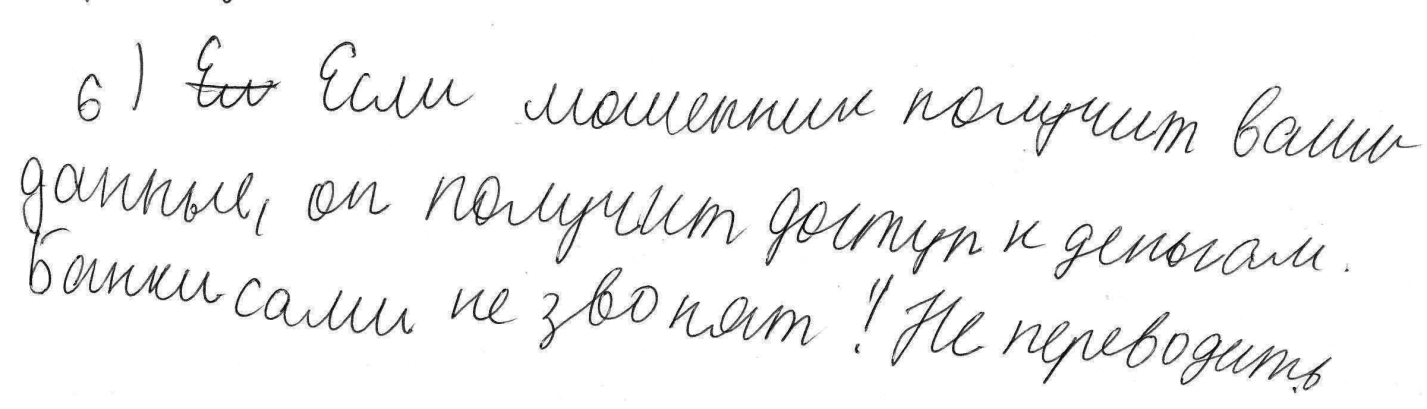 6) Если мошенник получит ваши
данные, он получит доступ к деньгам.
Банки сами не звонят! Не переводить